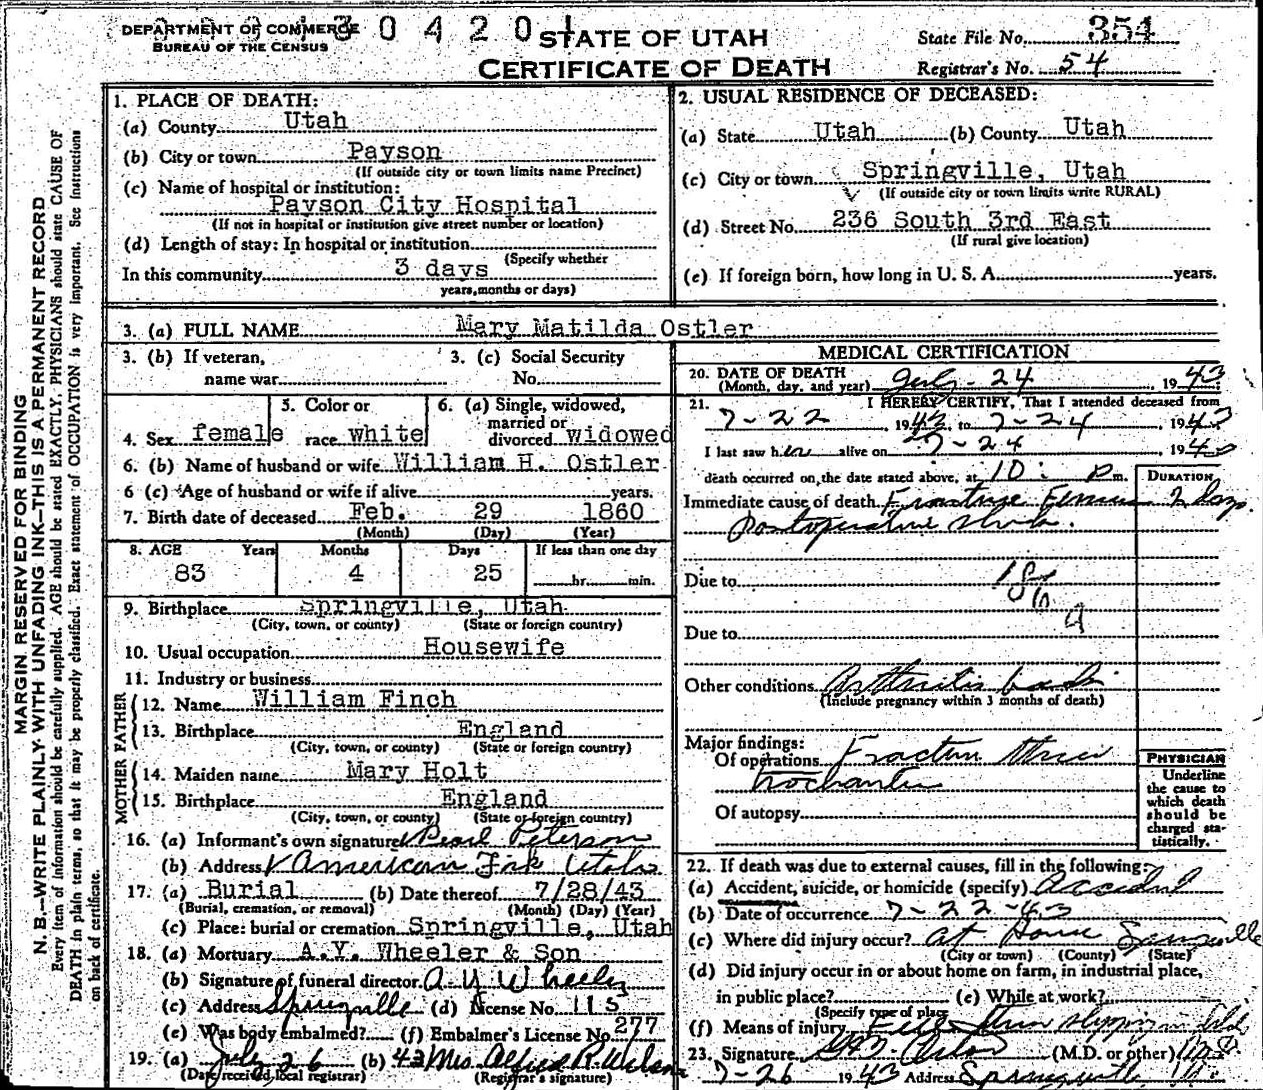 DEPARTMENT OF COMMERCE
BUREAU OF THE CENSUS
3 0 4 2 0 1
STATE OF UTAH
CERTIFICATE OF DEATH
State File No. 354
Registrar's No. 54
MARGIN RESERVED FOR BINDING
N. B.—WRITE PLAINLY WITH UNFADING INK—THIS IS A PERMANENT RECORD
Every item of information should be carefully supplied. AGE should be stated EXACTLY. PHYSICIANS should state CAUSE OF
DEATH in plain terms, so that it may be properly classified. Exact statement of OCCUPATION is very important. See instructions
on back of certificate.
1. PLACE OF DEATH:
(a) County Utah
(b) City or town Payson
(If outside city or town limits name Precinct)
(c) Name of hospital or institution:
Payson City Hospital
(If not in hospital or institution give street number or location)
(d) Length of stay: In hospital or institution
(Specify whether
In this community 3 days
years, months or days)
2. USUAL RESIDENCE OF DECEASED:
(a) State Utah (b) County Utah
(c) City or town Springville, Utah
(If outside city or town limits write RURAL)
(d) Street No. 236 South 3rd East
(If rural give location)
(e) If foreign born, how long in U. S. A. years.
3. (a) FULL NAME Mary Matilda Ostler
3. (b) If veteran,
name war
3. (c) Social Security
No.
4. Sex female
5. Color or
race white
6. (a) Single, widowed,
married or
divorced widowed
6. (b) Name of husband or wife William H. Ostler
6 (c) Age of husband or wife if alive years.
7. Birth date of deceased Feb. 29 1860
(Month) (Day) (Year)
8. AGE Years Months Days If less than one day
83 4 25 hr. min.
9. Birthplace Springville, Utah
(City, town, or county) (State or foreign country)
10. Usual occupation Housewife
11. Industry or business
FATHER
12. Name William Finch
13. Birthplace England
(City, town, or county) (State or foreign country)
MOTHER
14. Maiden name Mary Holt
15. Birthplace England
(City, town, or county) (State or foreign country)
16. (a) Informant's own signature Pearl Peterson
(b) Address American Fork Utah
17. (a) Burial (b) Date thereof 7/28/43
(Burial, cremation, or removal) (Month) (Day) (Year)
(c) Place: burial or cremation Springville, Utah
18. (a) Mortuary A.Y. Wheeler & Son
(b) Signature of funeral director A Y Wheeler
(c) Address Springville (d) License No. 115
(e) Was body embalmed? (f) Embalmer's License No. 277
19. (a) July 26 (b) 43 Mrs. Alfred R. Wilson
(Date received local registrar) (Registrar's signature)
MEDICAL CERTIFICATION
20. DATE OF DEATH
(Month, day, and year) July - 24, 1943
21. I HEREBY CERTIFY, That I attended deceased from
7-22, 1943, to 7-24, 1943
I last saw her alive on 7-24 1943
death occurred on the date stated above, at 10: p m.
DURATION
Immediate cause of death Fracture Femur 2 days.
Postoperative shock.
Due to
Due to
Other conditions Arthritis
(Include pregnancy within 3 months of death)
Major findings:
Of operations Fracture thru
trochanter
Of autopsy
PHYSICIAN
Underline
the cause to
which death
should be
charged sta-
tistically.
22. If death was due to external causes, fill in the following:
(a) Accident, suicide, or homicide (specify) Accident
(b) Date of occurrence 7-22-43
(c) Where did injury occur? At Home Springville
(City or town) (County) (State)
(d) Did injury occur in or about home on farm, in industrial place,
in public place? (e) While at work?
(Specify type of place)
(f) Means of injury
23. Signature (M.D. or other) M.D.
7-26 1943 Address Springville Ut.